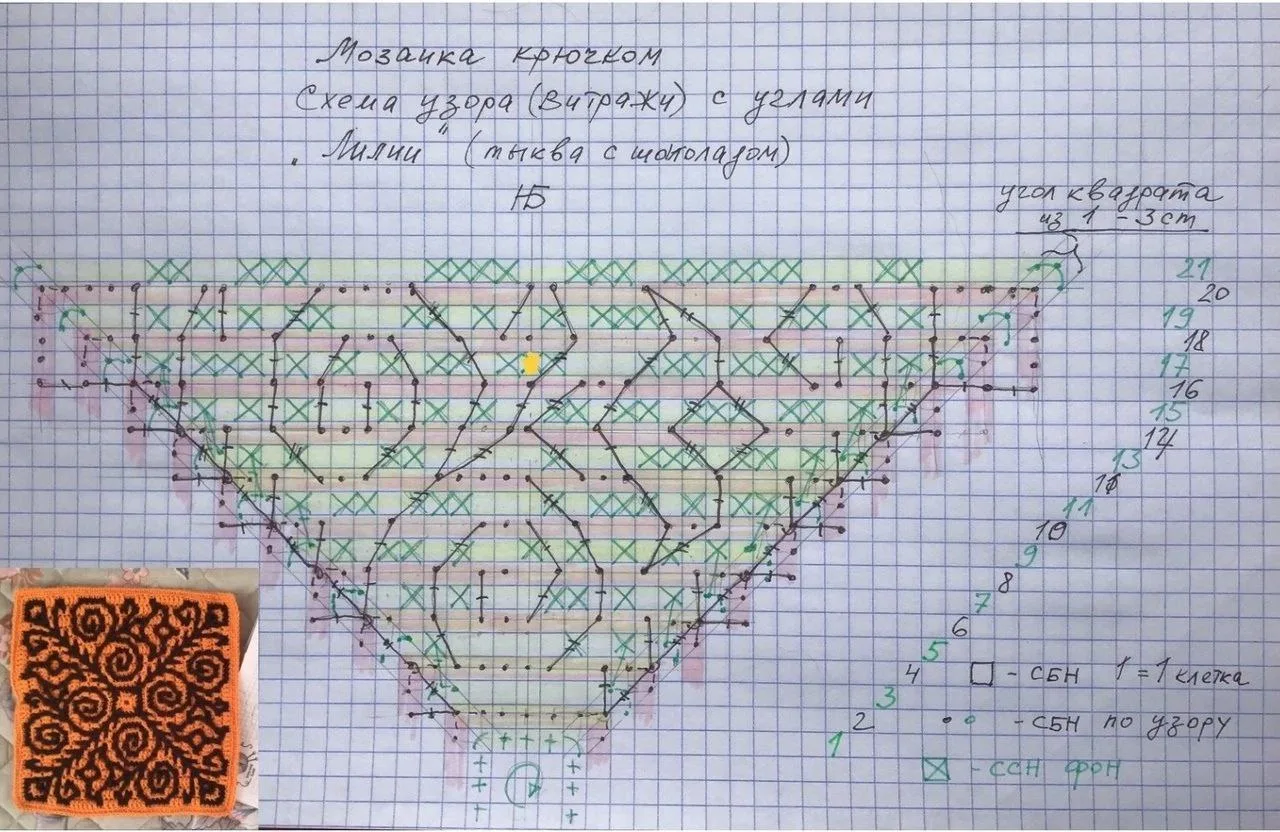 Мозаика крючком
Схема узора (Витражи) с углами
„Лилии" (тыква с шоколадом)
НБ
угол квадрата
из 1 - 3 ст
21
20
19
18
17
16
15
14
13
11
10
9
8
7
6
5
4
3
2
1
- СБН 1 = 1 клетка
- СБН по узору
- ССН фон